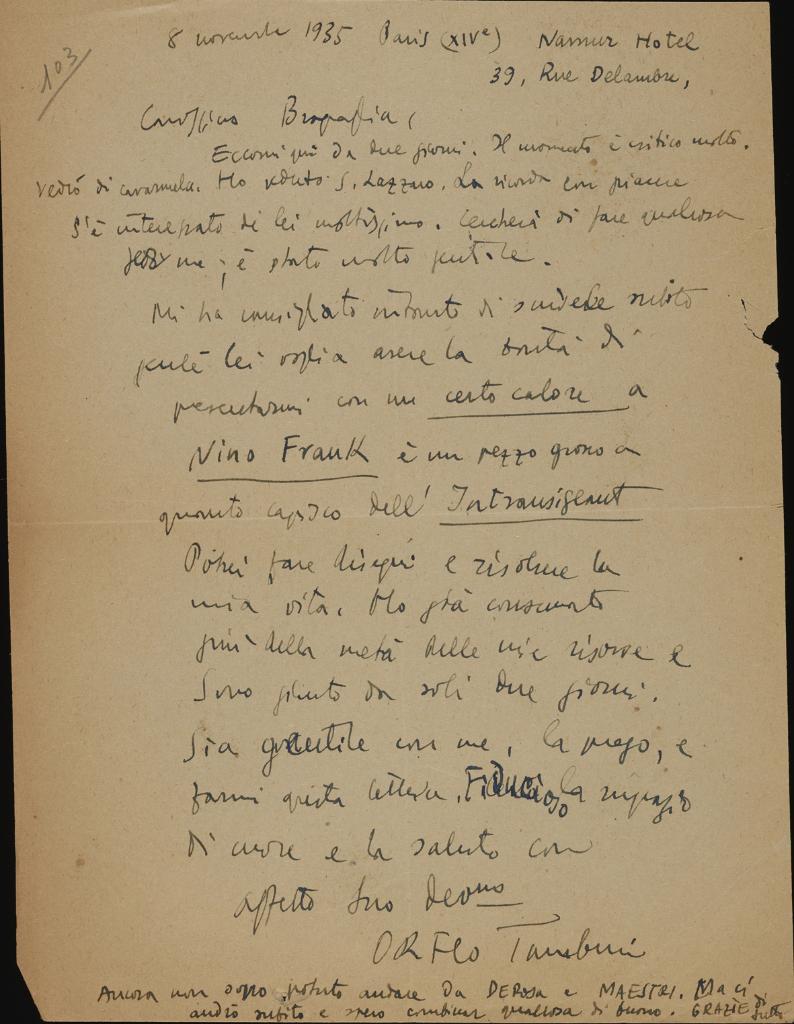 103
8 novembre 1935 Paris (XIVe) Namur Hotel
39, Rue Delambre,
Carissimo Bragaglia,
Eccomi qui da due giorni. Il momento è critico molto.
Vedrò di cavarmela. Ho veduto S. Lazzaro. La ricorda con piacere
S'è interessato di lei moltissimo. Cercherà di fare qualcosa
per me; è stato molto gentile.
Mi ha consigliato intanto di scriverLe subito
perché lei voglia avere la bontà di
presentarmi con un certo calore a
Nino Frank è un pezzo grosso a
quanto capisco dell'Intransigeant
Potrei fare disegni e risolvere la
mia vita. Ho già consumato
più della metà delle mie risorse e
Sono giunto da soli due giorni.
Sia gentile con me, la prego, e
farmi questa lettera. Fiducioso la ringrazio
di cuore e la saluto con
affetto suo dev.mo
ORFEO Tamburi
Ancora non sono potuto andare da DEROSA e MAESTRI. Ma ci
andrò subito e spero combinar qualcosa di buono. GRAZIE di tutto